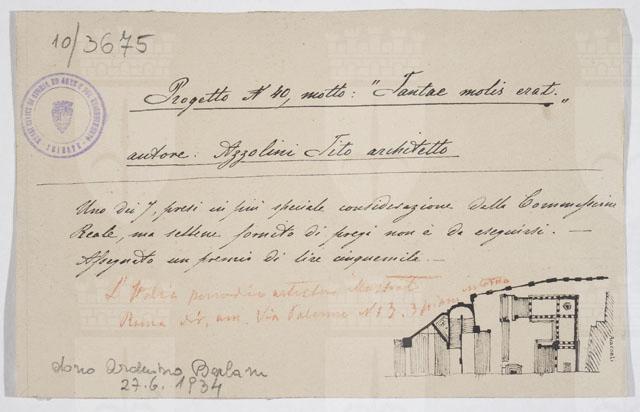 10/3675
Progetto N 40, motto: "Tantae molis erat."
autore: Azzolini Tito architetto
Uno dei 7, presi in più speciale considerazione dalla Commissione
Reale, ma sebbene fornito di pregi non è da eseguirsi. —
Assegnato un premio di lire cinquemila. —
L'Italia periodico artistico illustrato
Roma Via Palermo N. 3. 3 piano interno
Aracoeli
dono Arduino Berlam
27.6.1934